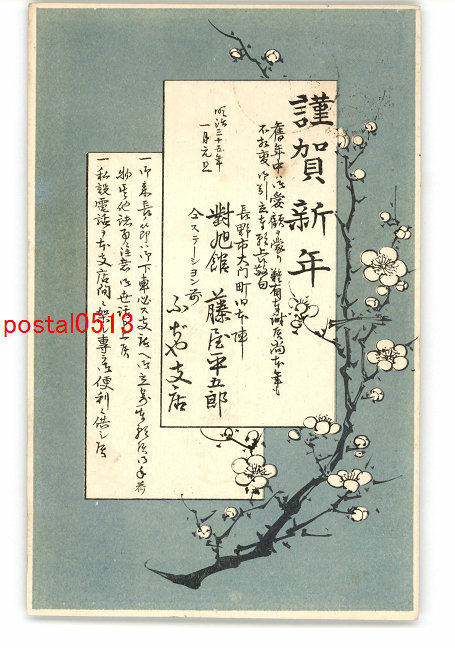 謹賀新年
舊年中ハ御愛顧ヲ蒙リ難有奉謝候尚本年も
不相変御引立奉願上候敬白
明治三十五年
一月元旦
長野市大門町旧本陣
對旭館 藤屋平五郎
仝ステーション前
ふぢや支店
一御来長ノ節ハ御下車必ス支店ヘ御立寄奉願候御手荷
物其他諸事注意御世話
一私設電話ヲ本支店間ニ架シ専ラ御便利ニ供シ候
postal0513